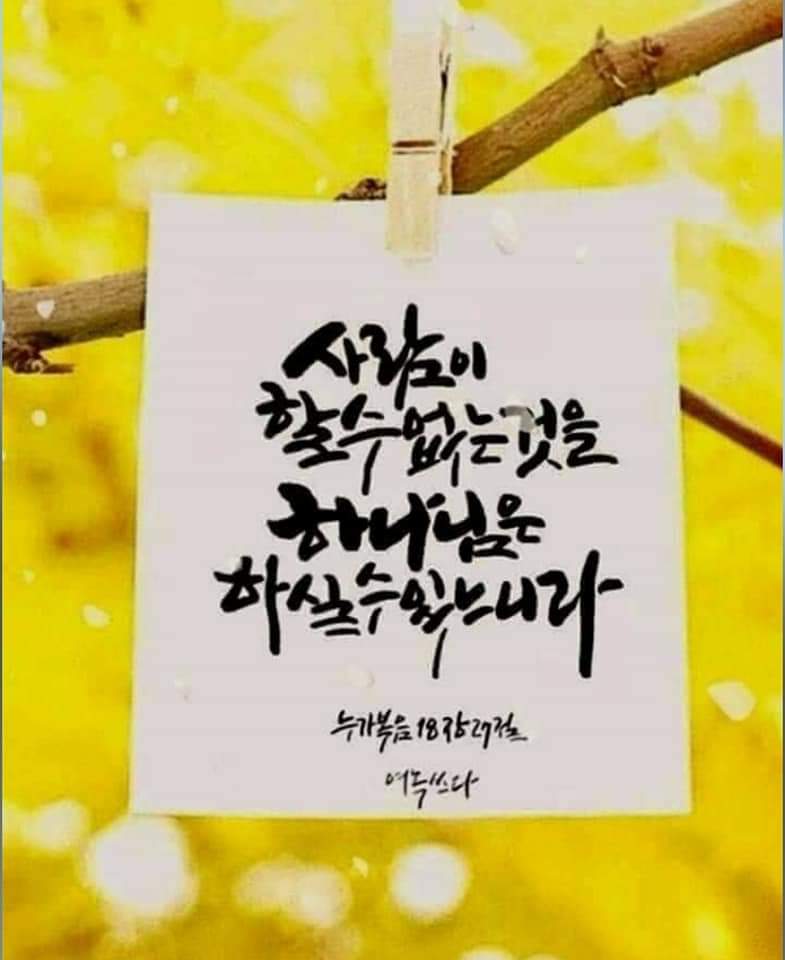 사람이
할수없는것을
하나님은
하실수있느니라
누가복음 18장 27절
여녹쓰다